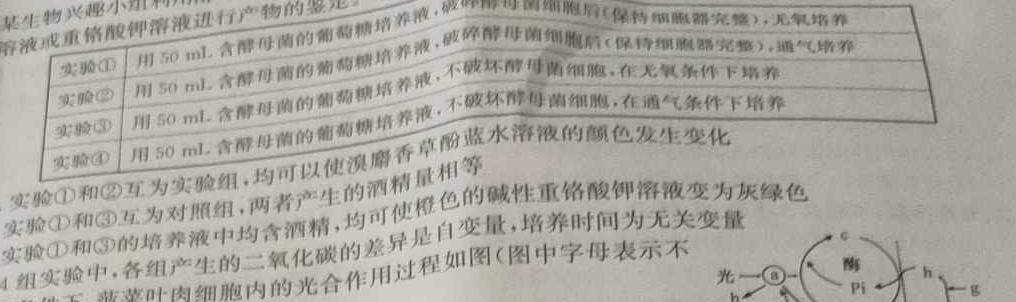 某生物兴趣小组利用
溶液或重铬酸钾溶液进行产物的鉴定。
实验① 用 50 mL 含酵母菌的葡萄糖培养液,破碎酵母菌细胞后(保持细胞器完整),无氧培养
实验② 用 50 mL 含酵母菌的葡萄糖培养液,破碎酵母菌细胞后(保持细胞器完整),通气培养
实验③ 用 50 mL 含酵母菌的葡萄糖培养液,不破坏酵母菌细胞,在无氧条件下培养
实验④ 用 50 mL 含酵母菌的葡萄糖培养液,不破坏酵母菌细胞,在通气条件下培养
实验①和②互为实验组,均可以使溴麝香草酚蓝水溶液的颜色发生变化
实验①和③互为对照组,两者产生的酒精量相等
实验①和③的培养液中均含酒精,均可使橙色的碱性重铬酸钾溶液变为灰绿色
4组实验中,各组产生的二氧化碳的差异是自变量,培养时间为无关变量
条件下,菠菜叶肉细胞内的光合作用过程如图(图中字母表示不
光 a b c 酶 Pi h g